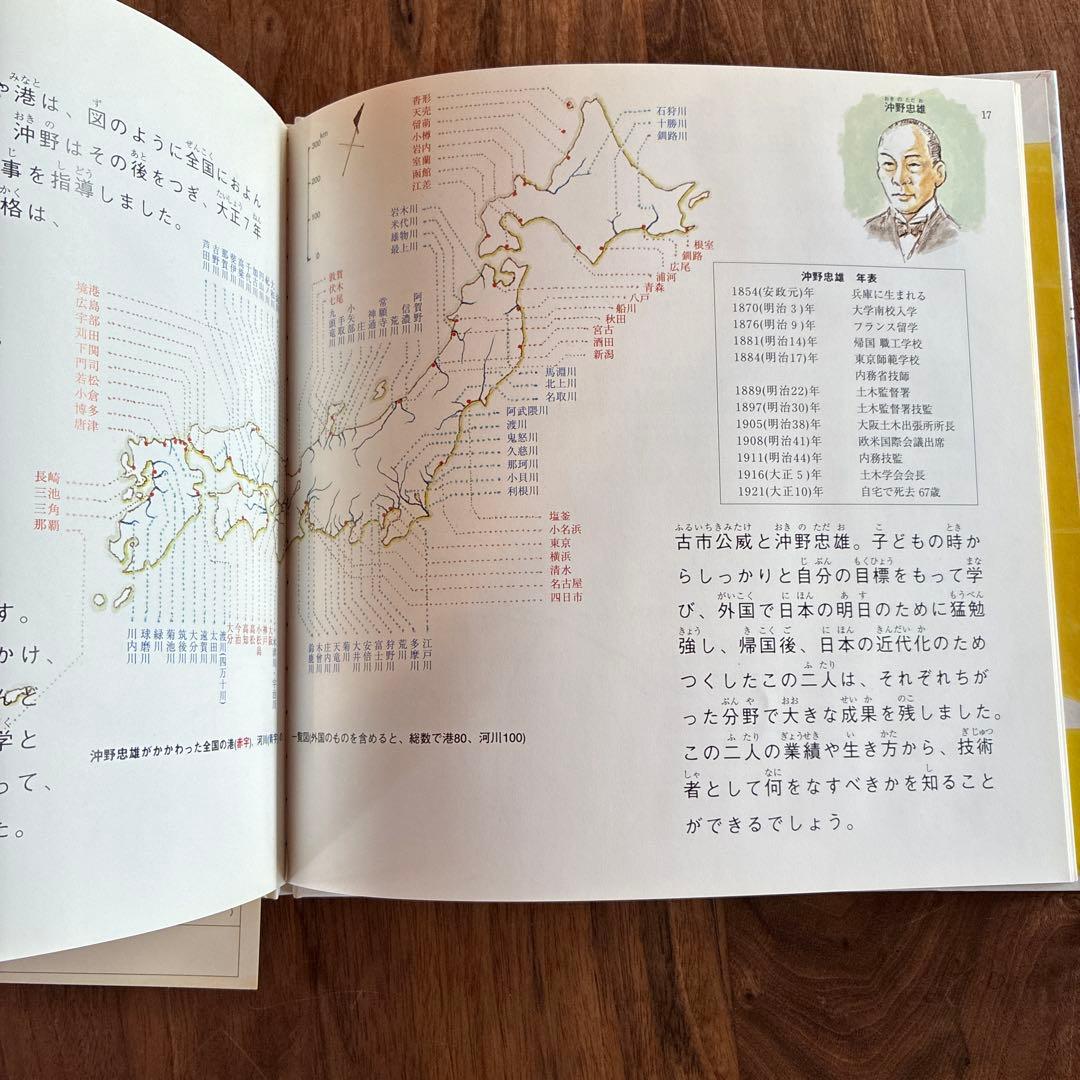 みなと
や港は、図のように全国におよん
沖野はその後をつぎ、大正7年
事を指導しました。
格は、
す。
かけ、
んど
学と
って、
た。
境港
広島
宇部
苅田
下関
門司
若松
小倉
博多
唐津
長崎
三池
三角
那覇
芦田川
吉野川
那賀川
斐伊川
高梁川
千代川
加古川
川内川
球磨川
緑川
菊池川
筑後川
大分川
遠賀川
太田川
渡川(四万十川)
大分
今治
高知
高松
小松島
神戸
大阪
沖野忠雄がかかわった全国の港(赤字)、河川(青字)の一覧図(外国のものを含めると、総数で港80、河川100)
km
300
200
100
0
沓形
天売
留萌
小樽
岩内
室蘭
函館
江差
石狩川
十勝川
釧路川
岩木川
米代川
雄物川
最上川
敦賀
伏木
七尾
九頭竜川
手取川
小矢部川
庄川
神通川
常願寺川
荒川
信濃川
阿賀野川
根室
釧路
広尾
浦河
青森
八戸
船川
秋田
宮古
酒田
新潟
馬淵川
北上川
名取川
阿武隈川
渡川
鬼怒川
久慈川
那珂川
小貝川
利根川
塩釜
小名浜
東京
横浜
清水
名古屋
四日市
鈴鹿川
木曽川
庄内川
天竜川
菊川
大井川
安倍川
富士川
狩野川
荒川
多摩川
江戸川
17
おきのただお
沖野忠雄
沖野忠雄 年表
1854(安政元)年 兵庫に生まれる
1870(明治3)年 大学南校入学
1876(明治9)年 フランス留学
1881(明治14)年 帰国 職工学校
1884(明治17)年 東京師範学校
内務省技師
1889(明治22)年 土木監督署
1897(明治30)年 土木監督署技監
1905(明治38)年 大阪土木出張所所長
1908(明治41)年 欧米国際会議出席
1911(明治44)年 内務技監
1916(大正5)年 土木学会会長
1921(大正10)年 自宅で死去 67歳
ふるいちきみたけ おきのただお こ とき
古市公威と沖野忠雄。子どもの時か
じぶん もくひょう まな
らしっかりと自分の目標をもって学
がいこく にほん あす もうべん
び、外国で日本の明日のために猛勉
きょう きこくご にほん きんだいか
強し、帰国後、日本の近代化のため
ふたり
つくしたこの二人は、それぞれちが
ぶんや おお せいか のこ
った分野で大きな成果を残しました。
ふたり ぎょうせき い かた ぎじゅつ
この二人の業績や生き方から、技術
しゃ なに し
者として何をなすべきかを知ること
ができるでしょう。